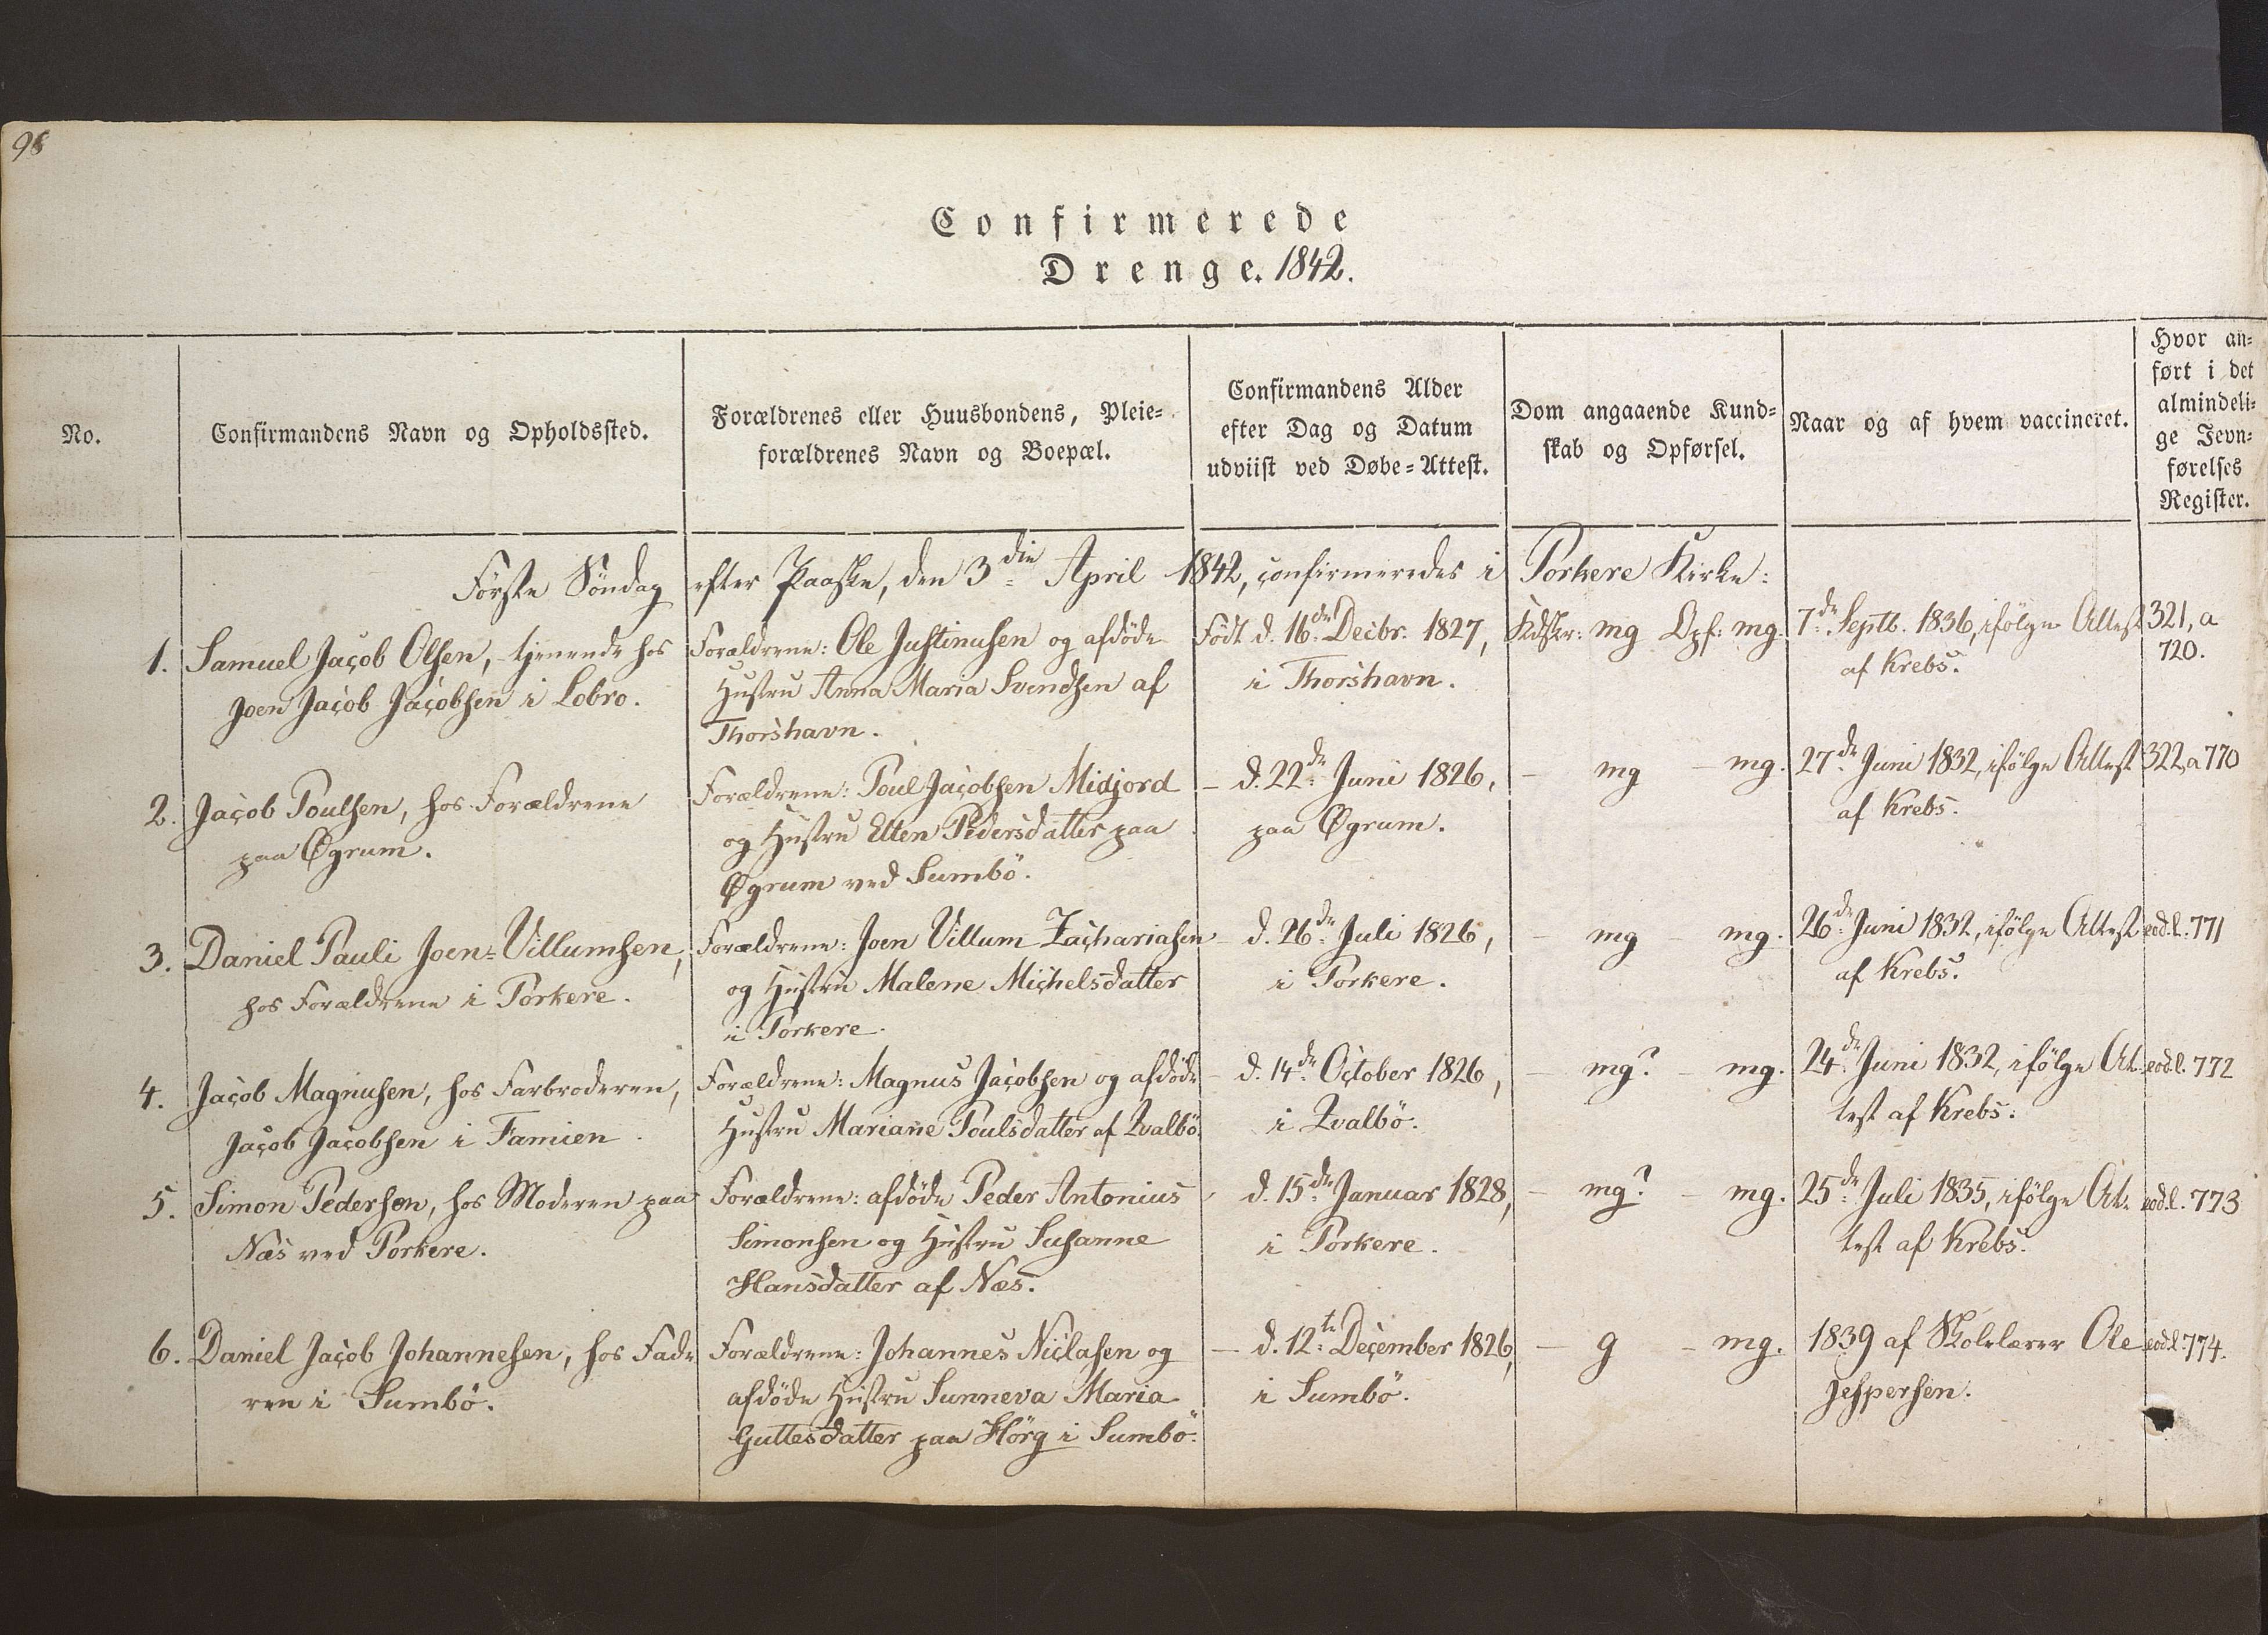 98
Confirmerede
Drenge. 1842.
No.
Confirmandens Navn og Opholdssted.
Forældrenes eller Huusbondens, Pleie-
forældrenes Navn og Boepæl.
Confirmandens Alder
efter Dag og Datum
udviist ved Døbe-Attest.
Dom angaaende Kund-
skab og Opførsel.
Naar og af hvem vaccineret.
Hvor an-
ført i det
almindeli-
ge Jevn-
førelses
Register.
Förste Söndag efter Paaske, den 3die April 1842, confirmeredes i Porkere Kirke:
1.
Samuel Jacob Olsen, tjenende hos
Joen Jacob Jacobsen i Lobro.
Forældrene: Ole Justinusen og afdöde
Hustru Anna Maria Svendsen af
Thorshavn.
Födt d. 16de Decbr. 1827,
i Thorshavn.
Kdsk: mg Opf: mg.
7de Septb. 1836, ifölge Attest
af Krebs.
321, a
720.
2.
Jacob Poulsen, hos Forældrene
paa Øgrum.
Forældrene: Poul Jacobsen Midjord
og Hustru Ellen Pedersdatter paa
Øgrum ved Sumbö.
– d. 22de Juni 1826,
paa Øgrum.
– mg – mg.
27de Juni 1832, ifölge Attest
af Krebs.
322, a 770
3.
Daniel Pauli Joen-Villumsen,
hos Forældrene i Porkere.
Forældrene: Joen Villum Zachariasen
og Hustru Malene Michelsdatter
i Porkere.
– d. 26de Juli 1826,
i Porkere.
– mg – mg.
26de Juni 1832, ifölge Attest
af Krebs.
eod.l. 771
4.
Jacob Magnusen, hos Farbroderen,
Jacob Jacobsen i Famien.
Forældrene: Magnus Jacobsen og afdöde
Hustru Mariane Poulsdatter af Qvalbö.
– d. 14de October 1826,
i Qvalbö.
– mg? – mg.
24de Juni 1832, ifölge At-
test af Krebs.
eod.l. 772
5.
Simon Pedersen, hos Moderen paa
Næs ved Porkere.
Forældrene: afdöde Peder Antonius
Simonsen og Hustru Susanne
Hansdatter af Næs.
– d. 15de Januar 1828,
i Porkere.
– mg? – mg.
25de Juli 1835, ifölge At-
test af Krebs.
eod.l. 773
6.
Daniel Jacob Johannesen, hos Fade-
ren i Sumbö.
Forældrene: Johannes Niclasen og
afdöde Hustru Sunneva Maria
Guttesdatter paa Hörg i Sumbö.
– d. 12te December 1826,
i Sumbö.
– g – mg.
1839 af Skolelærer Ole
Jespersen.
eod.l. 774.